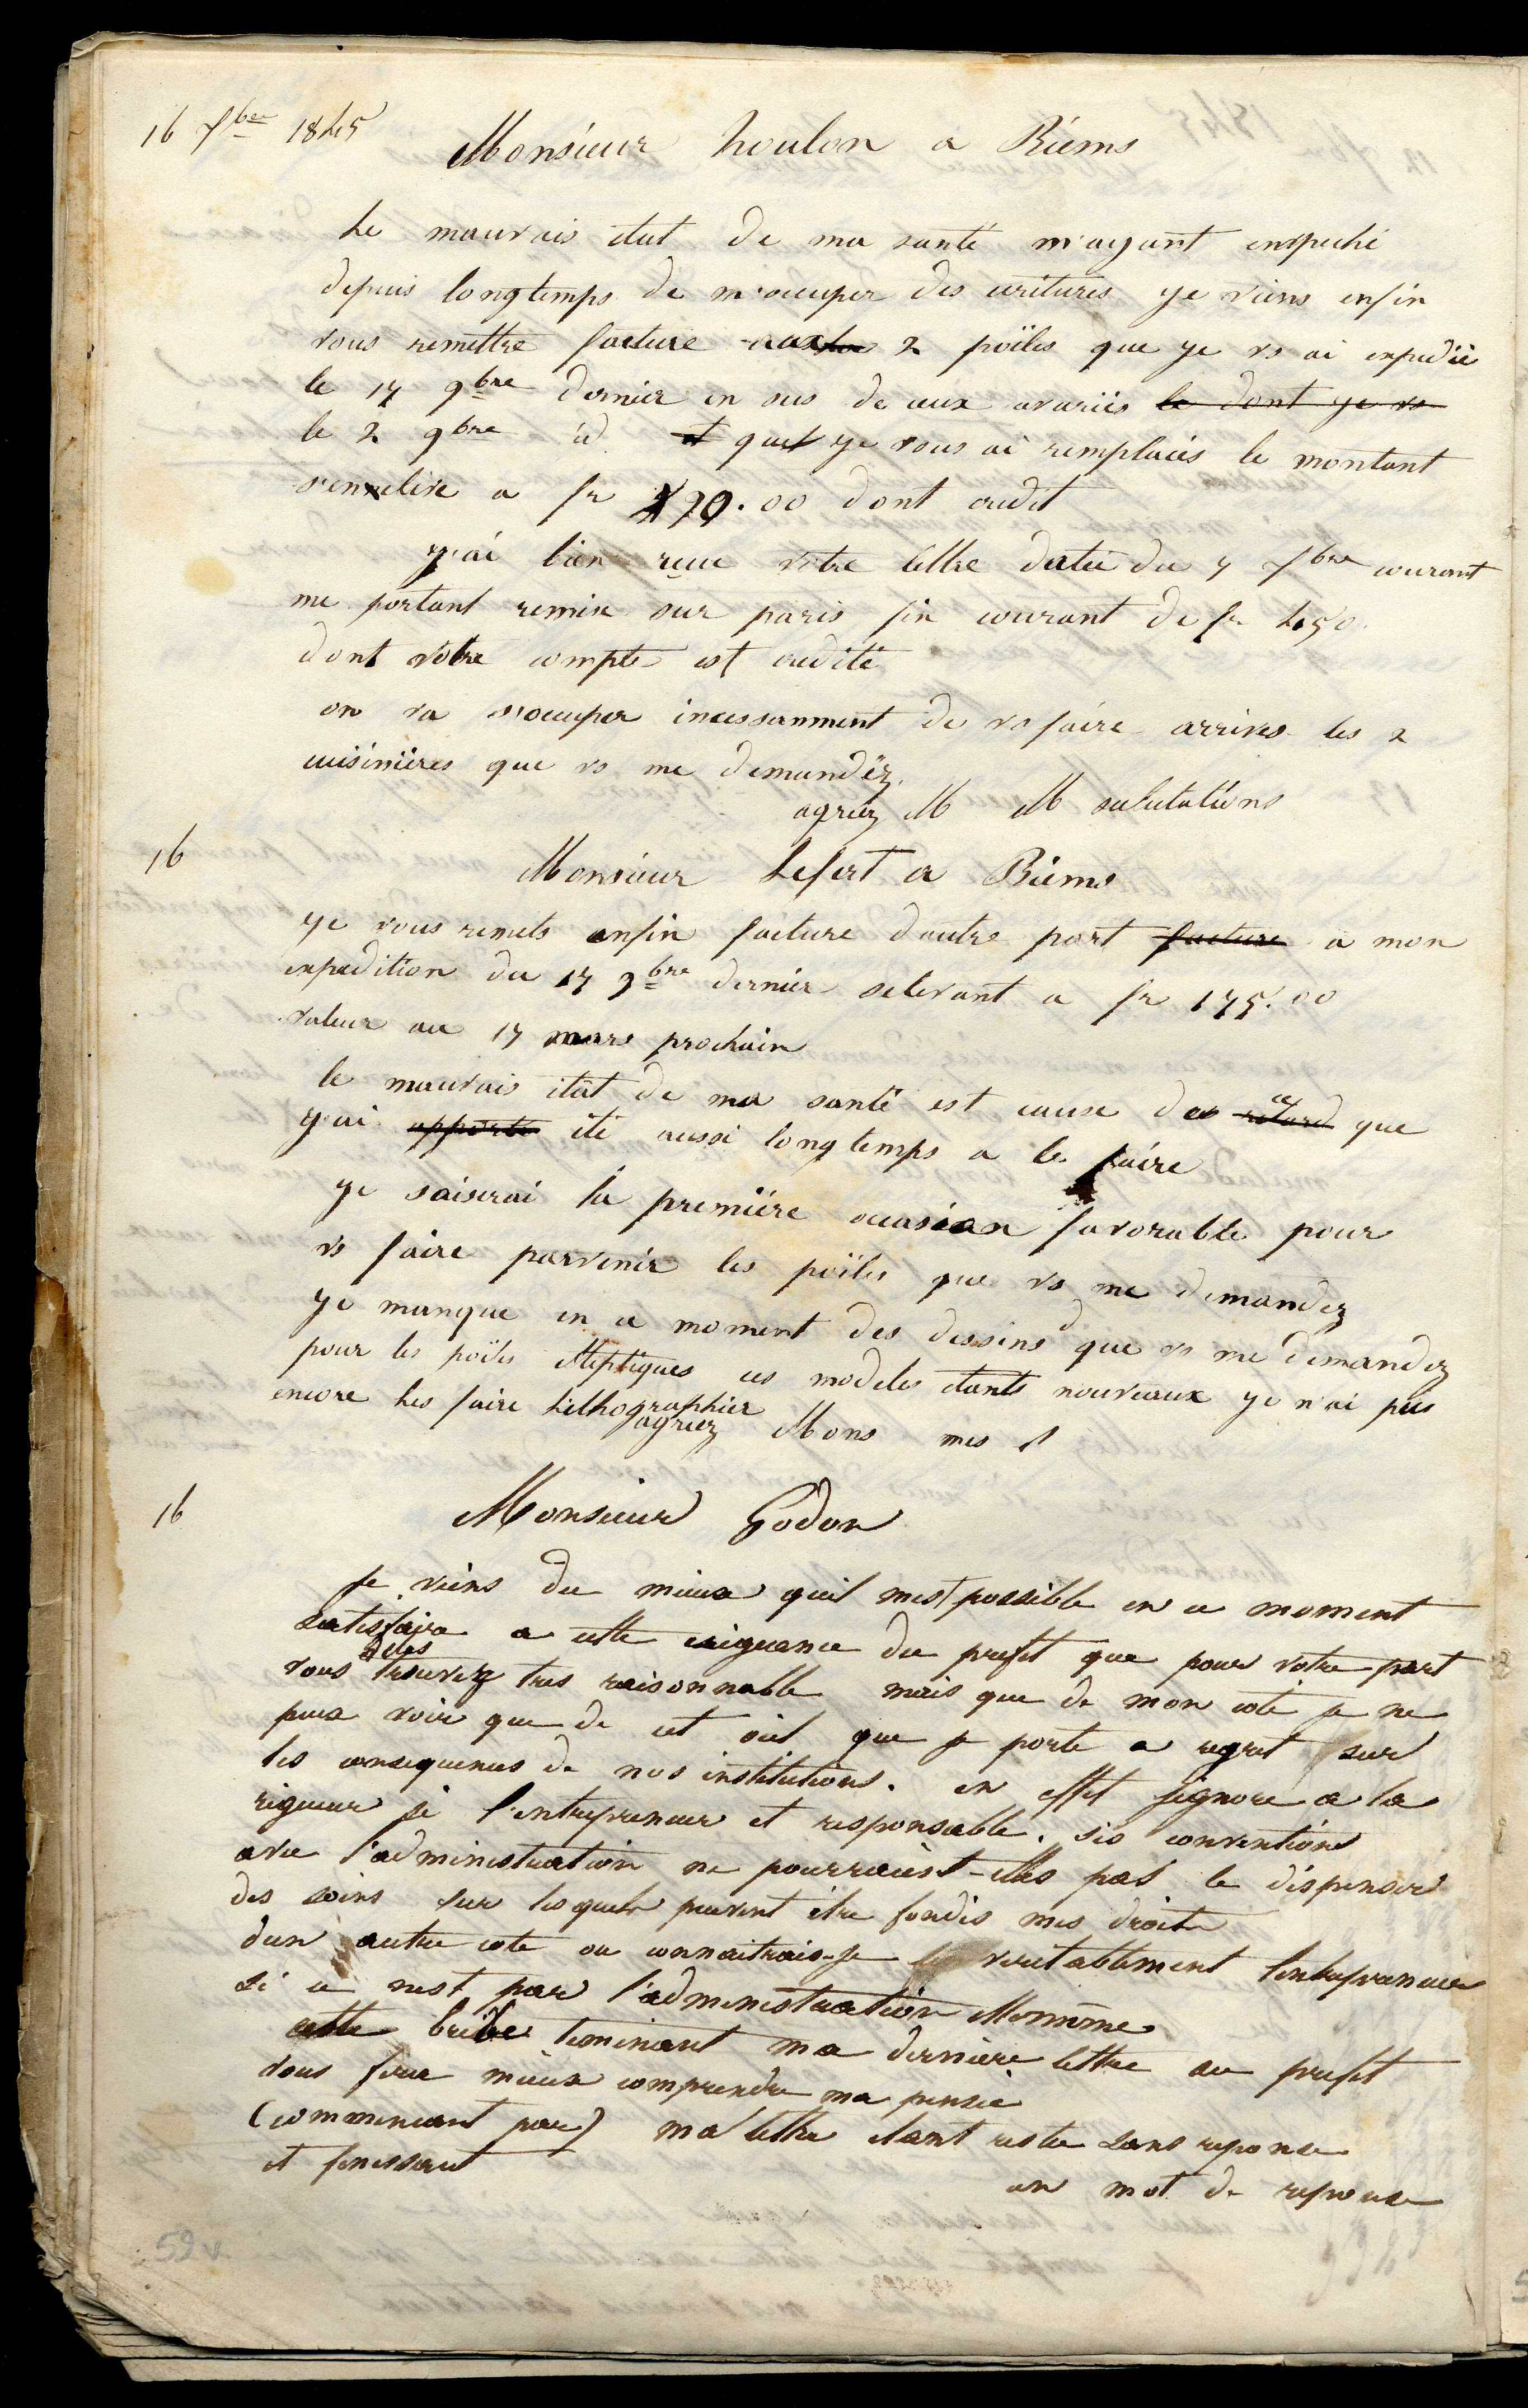 16 Xbre 1845
Monsieur houlon a Riems
Le mauvais etat de ma santé m'ayant enpeché
depuis longtemps de m'occuper des ecritures ye viens enfin
vous remettre facture 2 poïles que ye vs ai expedié
le 17 9bre dernier en sus de ceux avariés le dont ye vs
le 2 9bre id et que ye vous ai remplacés le montant
s'en elive a fr 190.00 dont credit
y'ai bien reçue votre lettre datée du 7 Xbre courant
me portant remise sur paris fin courant de fr 450.
dont votre compte est credité
on va s'occuper incessamment de vs faire arriver les 2
cuisinières que vs me demandéz.
agréez M M salutations
16
Monsieur Lefert a Riems
ye vous remets enfin facture d'autre part facture a mon
expedition du 17 9bre dernier selevant a fr 175.00
valeur au 17 mars prochain
le mauvais état de ma santé est cause de ce retard que
y'ai apporté été aussi longtemps a le faire
ye saiserai la première occasion favorable pour
vs faire parvenir les poïles que vs me demandez
ye manque en ce moment des dessins que vs me demandez
pour les poïles elleptiques ces modeles etants nouveaux ye n'ai pas
encore les faire lithographier
agréez Mons mes s
16
Monsieur Godon
je viens du mieux quil mest possible en ce moment
satisfaire a cette exigeance du prefet que pour votre part
vous trouvez tres raisonnable mais que de mon coté je ne
puis voir que de cet oeil que je porte a regret sur
les consequences de nos institutions. en effet jignore a la
rigueur si l'entrepreneur et responsable. ses conventions
avec l'administration ne pourraient-elles pas le dispenser
des soins sur lesquels peuvent être fondés mes droits
dun autre cote ou connaitrais-je veritablement lentrepreneur
si ce nest par l'administration Mmême
cette bribe terminant ma derniere lettre au prefet
vous fera mieux comprendre ma pensée
(commencant par) ma lettre etant restee sans reponse
et finissant
un mot de reponse
59 v.